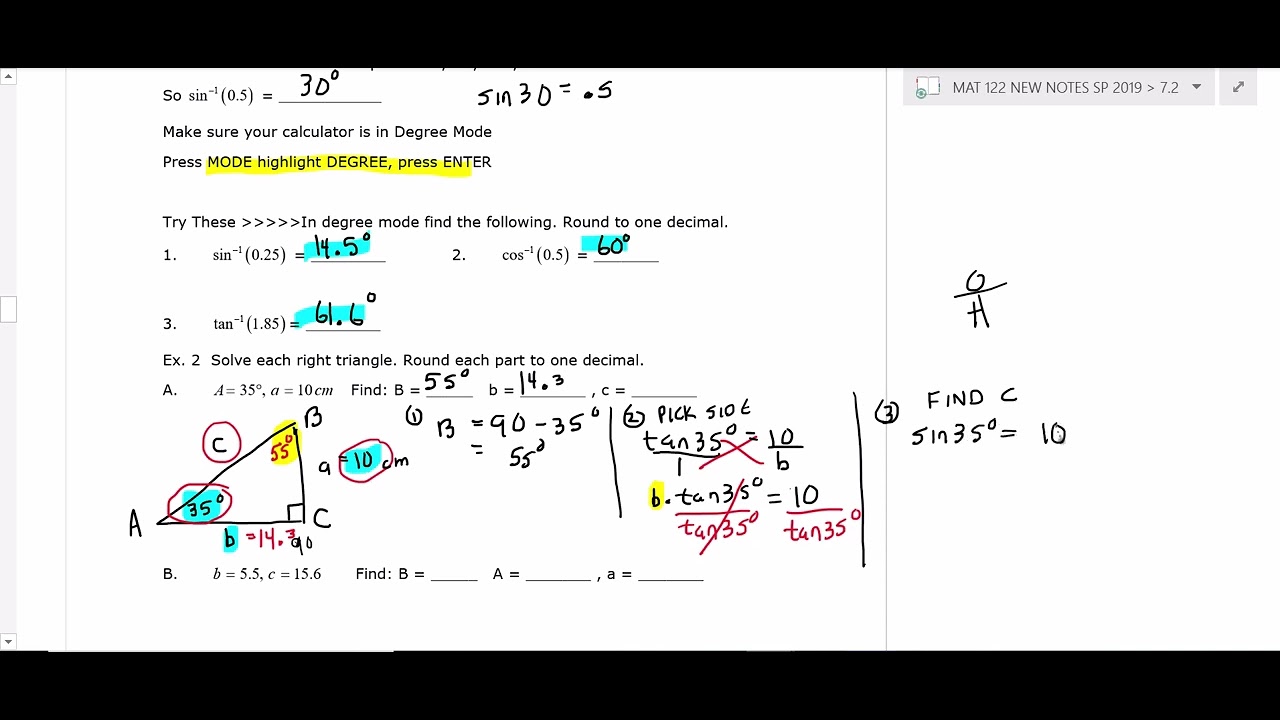 So sin⁻¹(0.5) = 30°
sin 30 = .5
MAT 122 NEW NOTES SP 2019 > 7.2
Make sure your calculator is in Degree Mode
Press MODE highlight DEGREE, press ENTER
Try These >>>>>In degree mode find the following. Round to one decimal.
1. sin⁻¹(0.25) = 14.5° 2. cos⁻¹(0.5) = 60°
3. tan⁻¹(1.85) = 61.6°
O
H
Ex. 2 Solve each right triangle. Round each part to one decimal.
A. A = 35°, a = 10 cm Find: B = 55° b = 14.3 , c = ______
B
C
55°
a = 10 cm
35°
A
C
b = 14.3
90
(1) B = 90 - 35°
= 55°
(2) PICK SIDE
tan 35° = 10
1 b
b · tan 35° = 10
tan 35° tan 35°
(3) FIND C
sin 35° = 10
B. b = 5.5, c = 15.6 Find: B = _____ A = _______ , a = _______